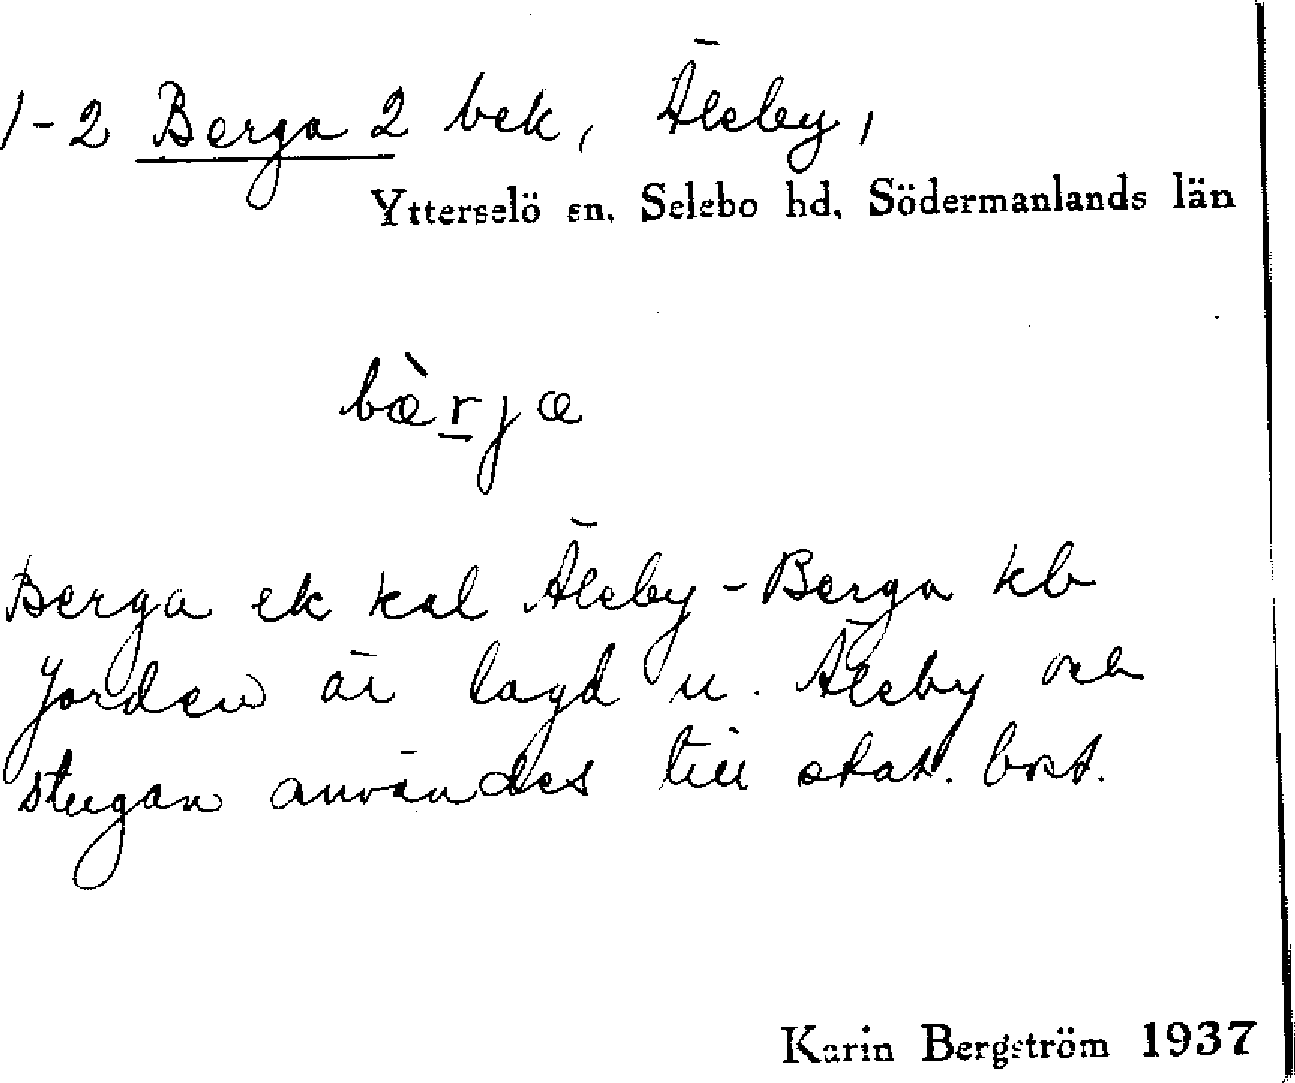 1-2 Berga 2 bek, Älsby,
Ytterselö sn. Selebo hd. Södermanlands län
bæ̀rja
Berga ek kal Älsby-Berga kb
Jorden är lagd u. Älsby och
stugan användes till stat. bost.
Karin Bergström 1937